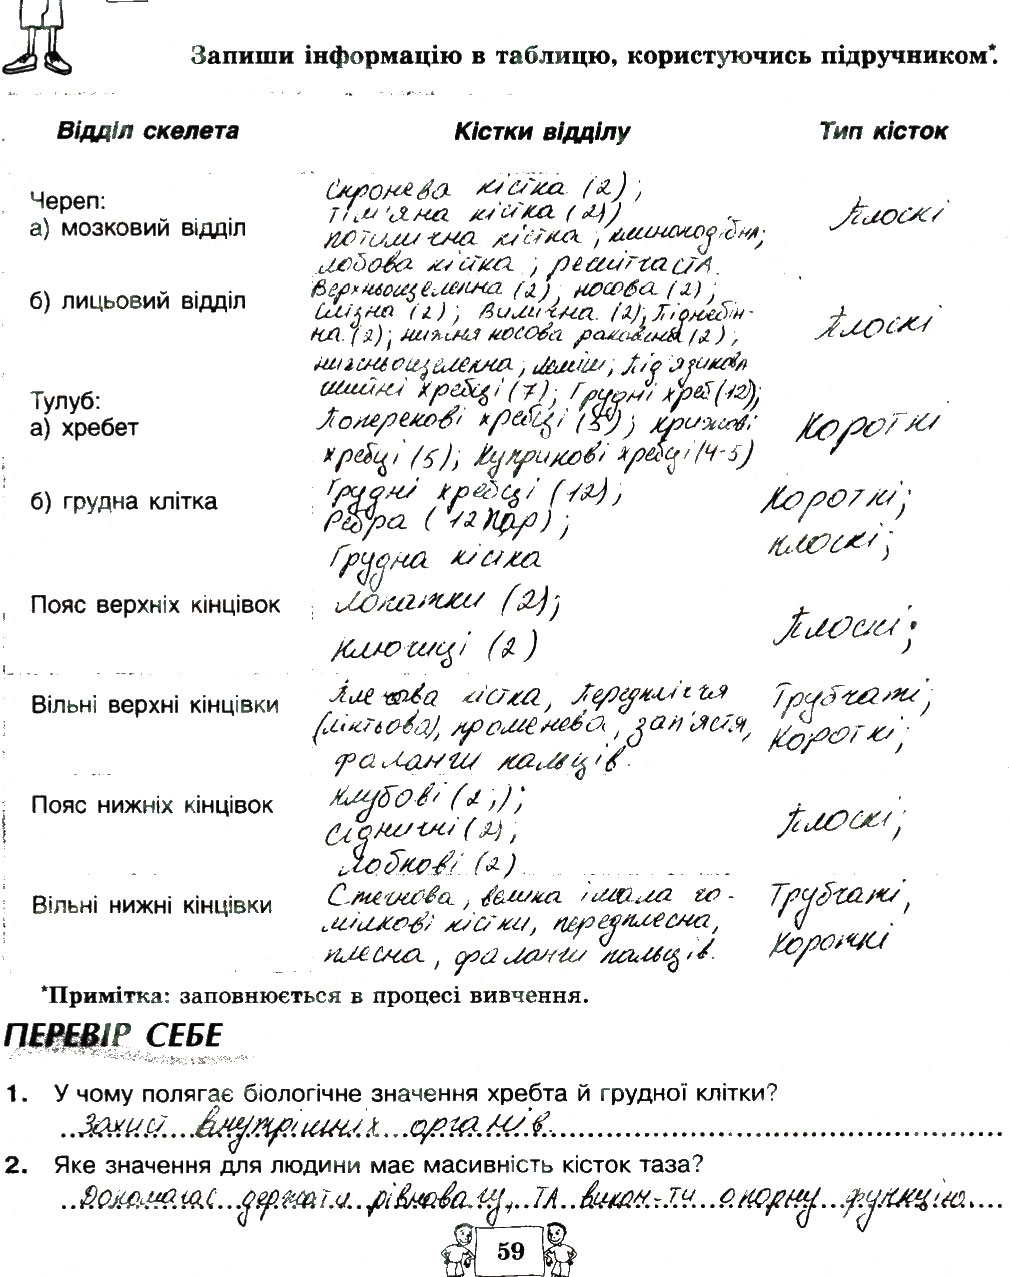 Запиши інформацію в таблицю, користуючись підручником*.
Відділ скелета Кістки відділу Тип кісток
Череп:
а) мозковий відділ
Скронева кістка (2);
Тім'яна кістка (2)
потилична кістка; клиноподібна;
лобова кістка; решітчаста.
Плоскі
б) лицьовий відділ
Верхньощелепна (2), носова (2);
Слізна (2); Вилична (2); Піднебін-
на (2); нижня носова раковина (2);
нижньощелепна; леміш; Під'язикова
Плоскі
Тулуб:
а) хребет
шийні хребці (7); Грудні хреб (12);
Поперекові хребці (5); крижові
хребці (5); Куприкові хребці (4-5)
Короткі
б) грудна клітка
Грудні хребці (12);
Ребра (12 пар);
Грудна кістка
Короткі;
плоскі;
Пояс верхніх кінцівок
Лопатки (2);
Ключиці (2)
Плоскі;
Вільні верхні кінцівки
Плечова кістка, Передпліччя
(ліктьова), променева, зап'ястя,
фаланги пальців.
Трубчаті;
Короткі;
Пояс нижніх кінцівок
Клубові (2);
Сідничні (2);
Лобкові (2)
Плоскі;
Вільні нижні кінцівки
Стегнова, велика і мала го-
мілкові кістки, передплесна,
плесна, фаланги пальців.
Трубчаті,
Короткі
*Примітка: заповнюється в процесі вивчення.
ПЕРЕВІР СЕБЕ
1. У чому полягає біологічне значення хребта й грудної клітки?
Захист внутрішніх органів.
2. Яке значення для людини має масивність кісток таза?
Допомагає держати рівновагу, та викон-ти опорну функцію
59